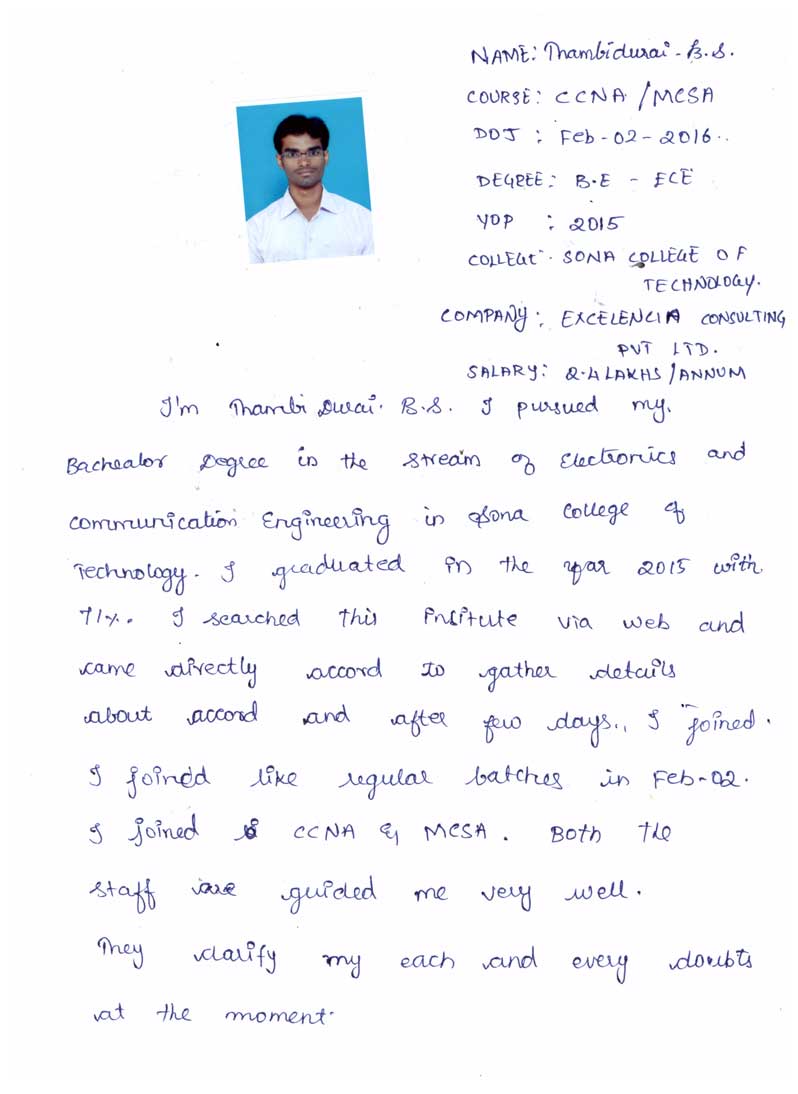 NAME: Thambidurai - B.S.
COURSE: CCNA / MCSA
DOJ : Feb-02-2016.
DEGREE: B.E - ECE
YOP : 2015
COLLEGE: SONA COLLEGE OF
TECHNOLOGY.
COMPANY: EXCELENCIA CONSULTING
PVT LTD.
SALARY: 2.4 LAKHS / ANNUM
I'm Thambi Durai. B.S. I pursued my
Bachealor Degree in the stream of Electronics and
communication Engineering in Sona College of
Technology. I graduated in the year 2015 with
71%. I searched this institute via web and
came directly accord to gather details
about accord and after few days., I joined.
I joined like regular batches in Feb-02.
I joined CCNA & MCSA. Both the
staff are guided me very well.
They clarify my each and every doubts
at the moment.